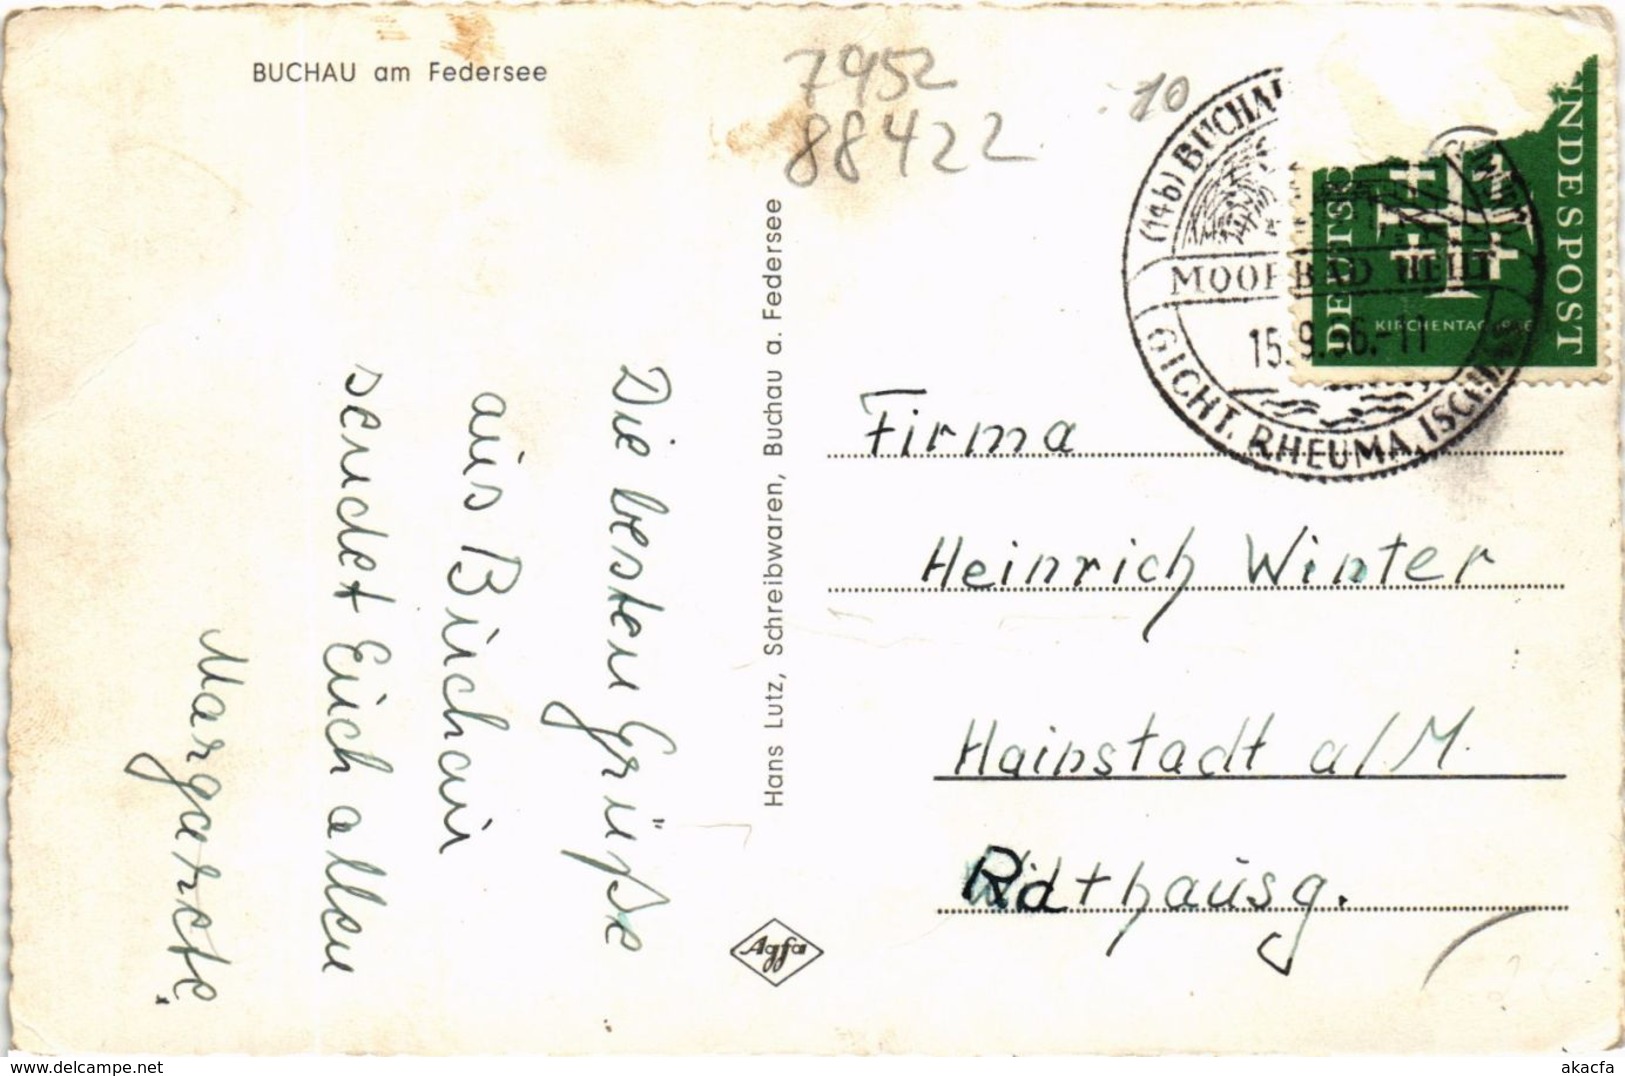 BUCHAU am Federsee
7952
88422
10
Die besten Grüße
aus Buchau
sendet Euch allen
Margarete
Hans Lutz, Schreibwaren, Buchau a. Federsee
Agfa
(14b) BUCHAU
MOORBAD HEILT
15.9.56.-11
GICHT, RHEUMA, ISCHIAS
DEUTSCHE
BUNDESPOST
KIRCHENTAG
Firma
Heinrich Winter
Hainstadt a/M.
Rathausg.
www.delcampe.net
akacfa